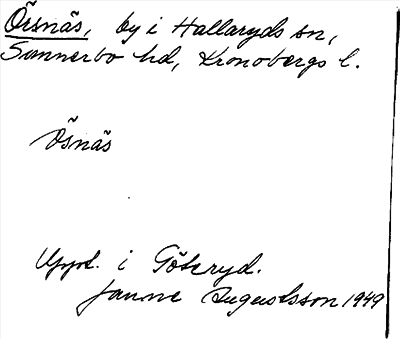 Örsnäs, by i Hallaryds sn,
Sunnerbo hd, Kronobergs l.
Ösnäs
Uppt. i Göteryd.
Janne Augustsson 1949